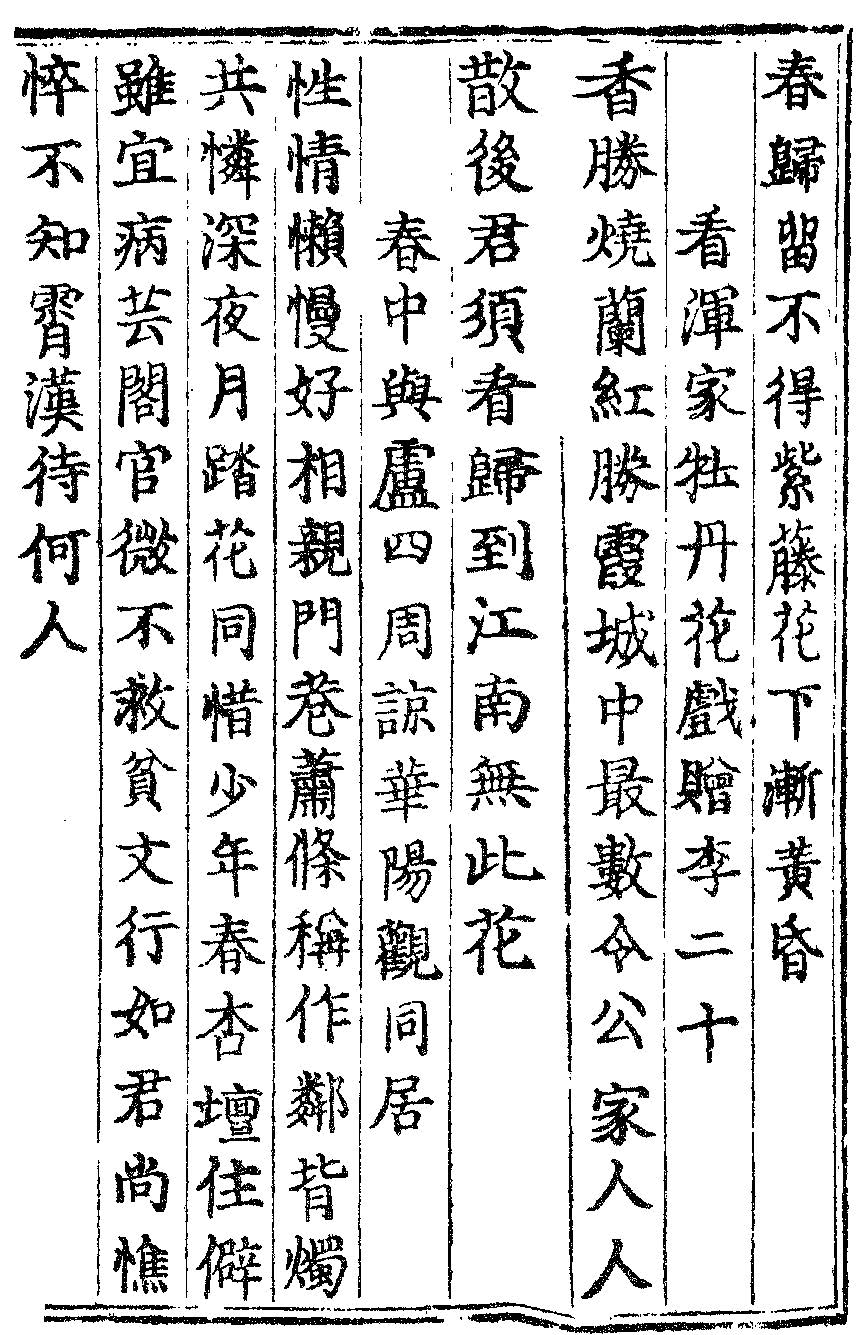 春歸畱不得紫藤花下漸黃昏
看渾家牡丹花戲贈李二十
香勝燒蘭紅勝霞城中最數令公家人人
散後君須看歸到江南無此花
春中與盧四周諒華陽觀同居
性情懶慢好相親門巷蕭條稱作鄰背燭
共憐深夜月踏花同惜少年春杏壇住僻
雖宜病芸閣官微不救貧文行如君尚憔
悴不知霄漢待何人